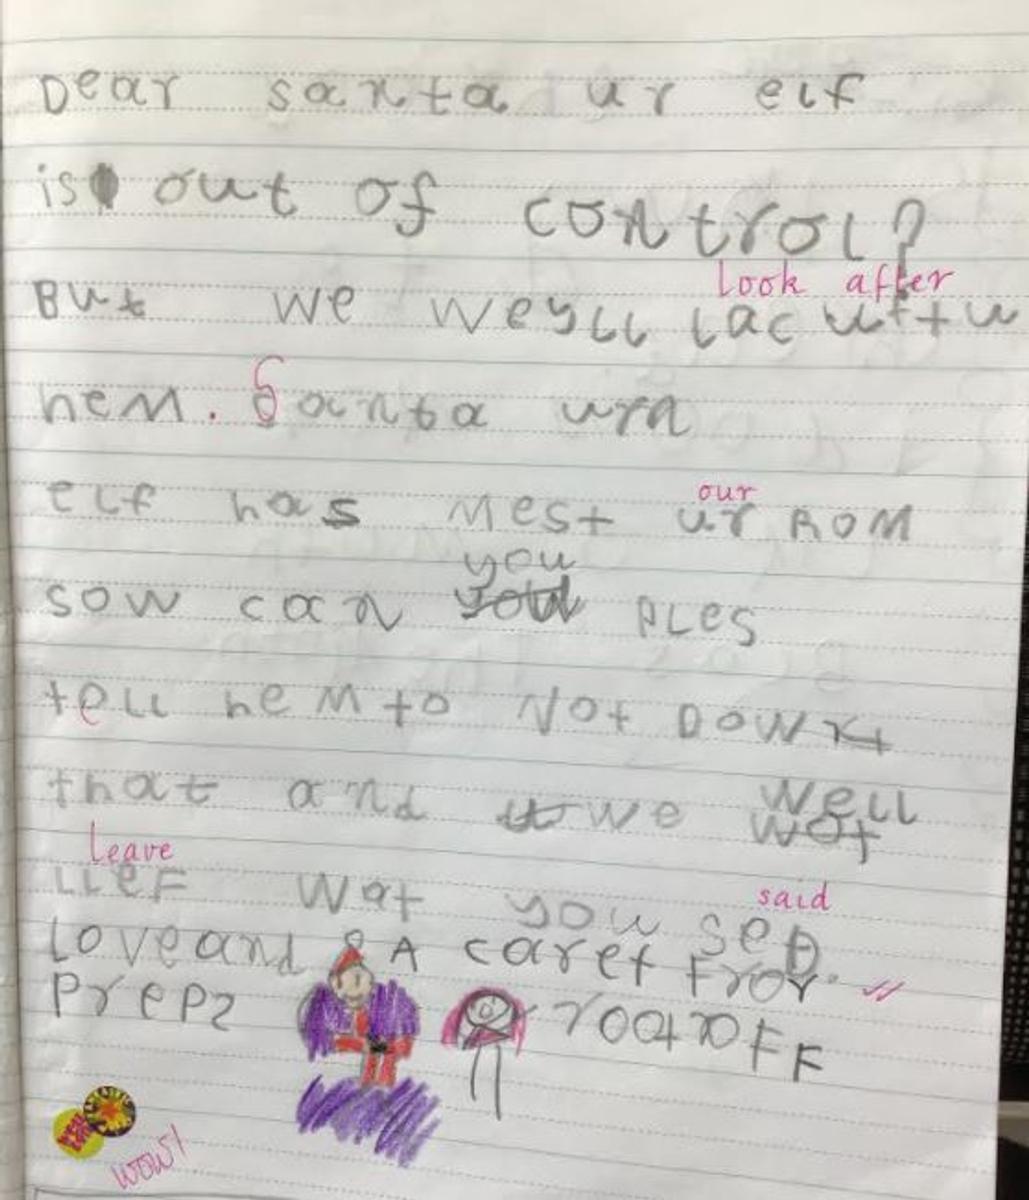 Dear santa ur elf
is out of control?
look after
But we weyll lac uftu
hem. Santa urn
elf has mest ur Rom
our
you
sow can ples
tell hem to Not Downt
that and we well
wot
Leave
LLeF wat you sed
said
Love and A caret
Prep2 rootoff
WOW!